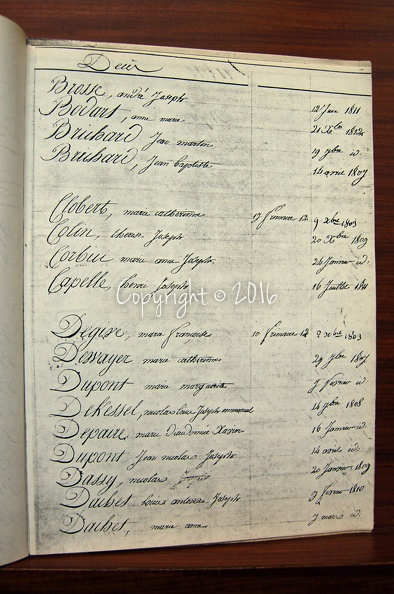 Decès
Brosse, andré Joseph 12 Juin 1811
Bodart, anne marie 21 Xbre 1812
Bruhard, Jean martin 19 9bre id.
Bruhard, Jean baptiste 14 avril 1807
Clobert, marie catherinne 17 frimaire 12. 9 Xbre 1803
Colin, Joseph 20 Xbre 1809
Corbui marie anne Joseph 26 Janvier id.
Capelle, Joseph 16 Juillet 1811
Copyright © 2016
marie françoise 10 frimaire 12 1803
marie catherinne 29 1807
Dupont marie marguerite 7 fevrier id.
Dekessel, nicolas louis Joseph emmanuel 14 9bre 1808
Depaire, marie Xavier 16 Janvier id.
Dupont Jean nicolas Joseph 14 avril id.
Dassy, nicolas 20 Janvier 1809
Dachet louis antoine Joseph 9 fevrier 1810
Dachet, marie anne 7 mars id.